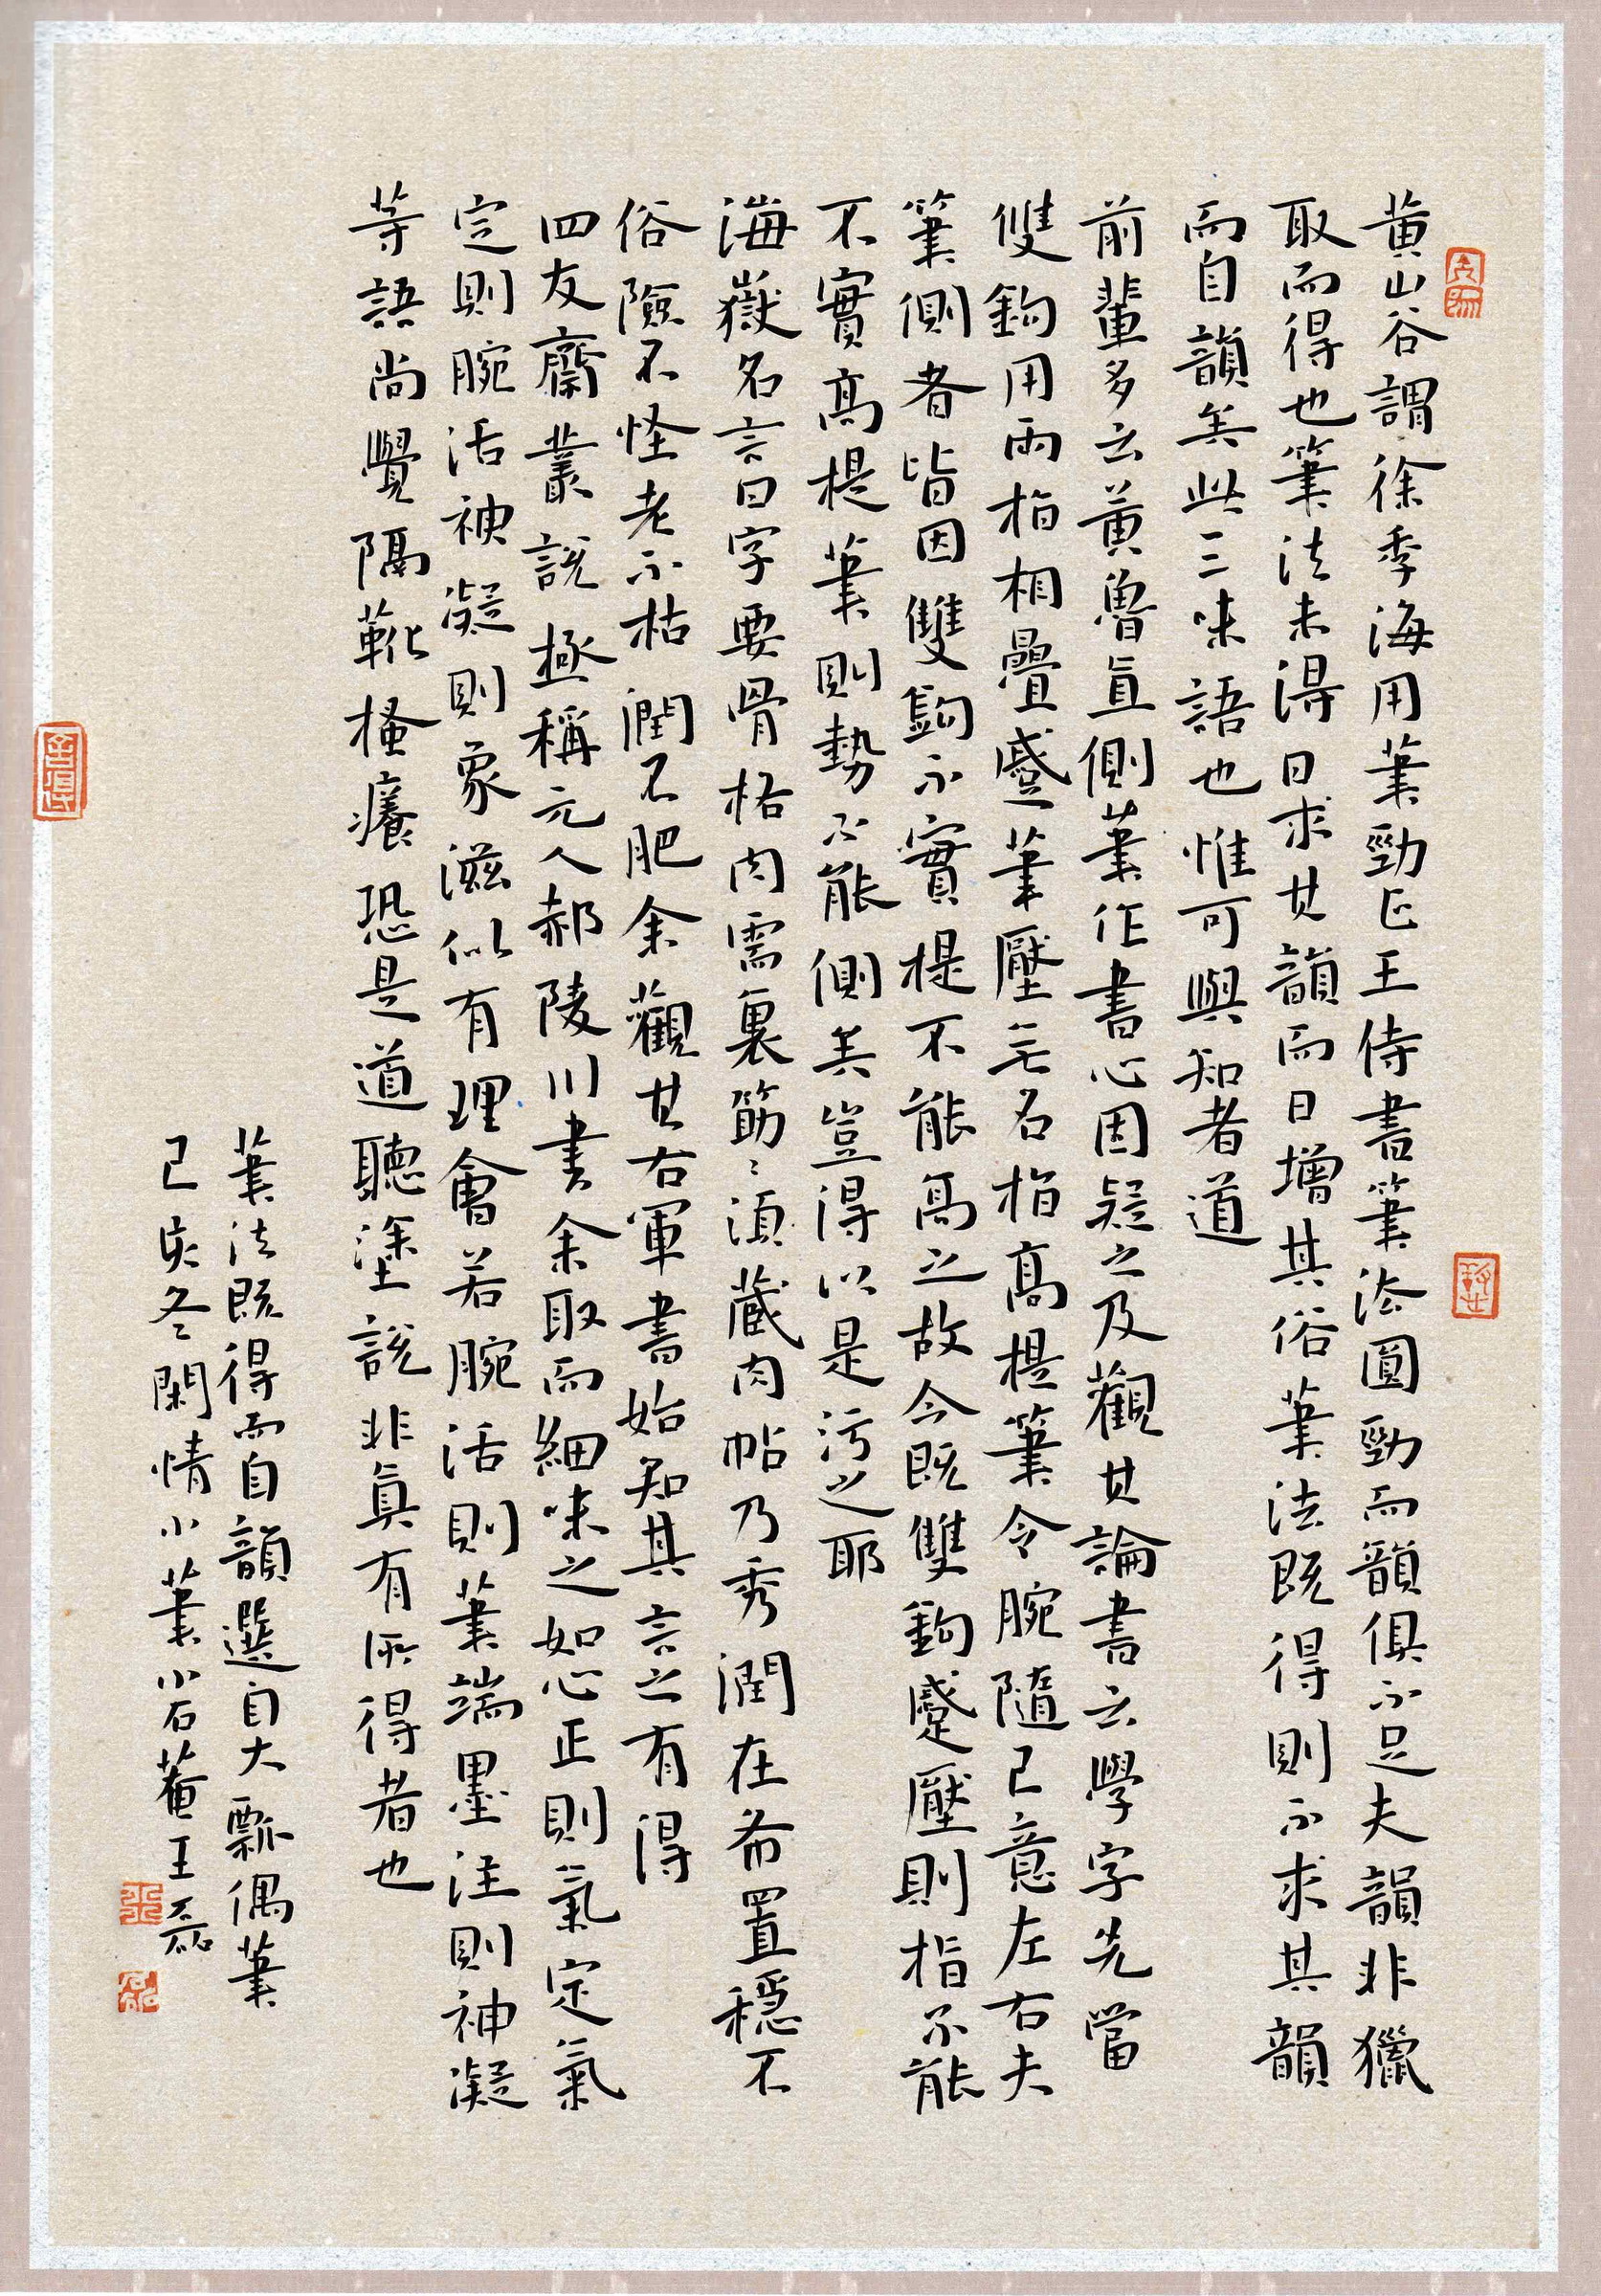 黄山谷謂徐季海用筆勁正王侍書筆法圓勁而韻俱不足夫韻非獵
取而得也筆法未得日求其韻而日增其俗筆法既得則不求其韻
而自韻矣此三味語也惟可與知者道
前輩多云黄魯直側筆作書心因疑之及觀其論書云學字先當
雙鉤用兩指相疊蹙筆壓無名指高提筆令腕隨己意左右夫
筆側者皆因雙鉤不實提不能高之故今既雙鉤蹙壓則指不能
不實高提筆則勢不能側矣豈得以是污之耶
海嶽名言曰字要骨格肉需裹筋〻須藏肉帖乃秀潤在布置穩不
俗險不怪老不枯潤不肥余觀其右軍書始知其言之有得
四友齋叢説極稱元人郝陵川書余取而細味之如心正則氣定氣
定則腕活神凝則象滋似有理會若腕活則筆端墨注則神凝
等語尚覺隔靴搔癢恐是道聽塗説非真有所得者也
筆法既得而自韻選自大瓢偶筆
己亥冬閑情小筆小石菴王磊